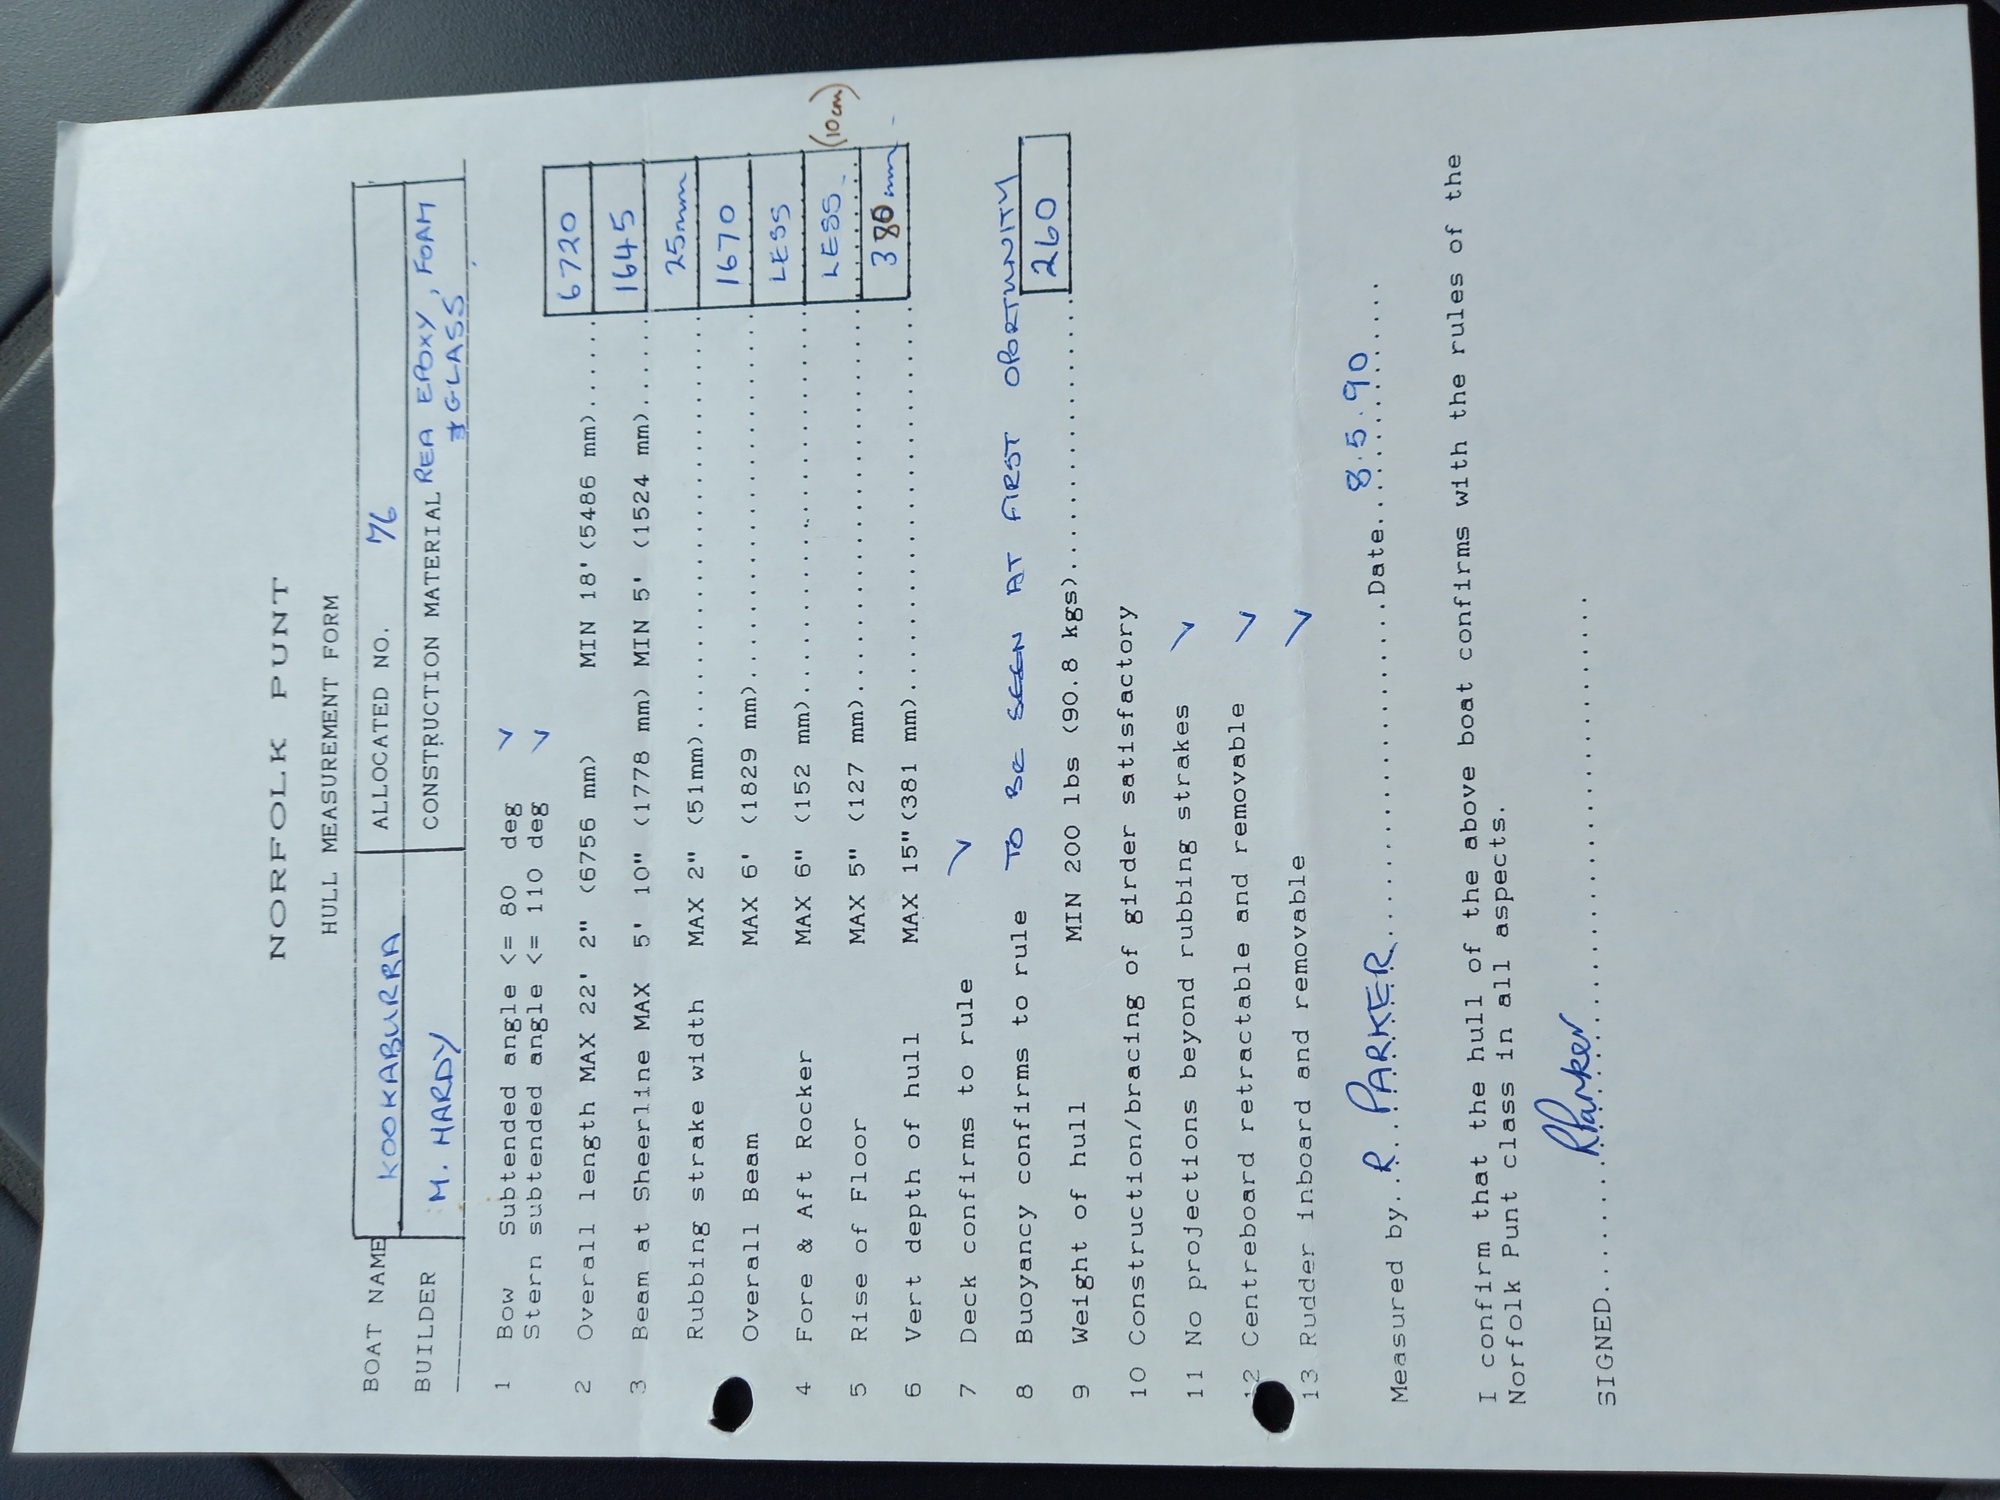 NORFOLK PUNT
HULL MEASUREMENT FORM
BOAT NAME KOOKABURRA ALLOCATED NO. 76
BUILDER M. HARDY CONSTRUCTION MATERIAL REA EPOXY, FOAM
+ GLASS
1 Bow Subtended angle <= 80 deg ✓
Stern subtended angle <= 110 deg ✓
2 Overall length MAX 22' 2" (6756 mm) MIN 18' (5486 mm)...... 6720
3 Beam at Sheerline MAX 5' 10" (1778 mm) MIN 5' (1524 mm)...... 1645
Rubbing strake width MAX 2" (51mm)........................ 25mm
Overall Beam MAX 6' (1829 mm)..................... 1670
4 Fore & Aft Rocker MAX 6" (152 mm)...................... LESS
5 Rise of Floor MAX 5" (127 mm)...................... LESS (10cm)
6 Vert depth of hull MAX 15" (381 mm)...................... 380mm
7 Deck confirms to rule ✓
8 Buoyancy confirms to rule TO BE SEEN AT FIRST OPORTUNITY
9 Weight of hull MIN 200 lbs (90.8 kgs)................. 260
10 Construction/bracing of girder satisfactory
11 No projections beyond rubbing strakes ✓
12 Centreboard retractable and removable ✓
13 Rudder inboard and removable ✓
Measured by..R PARKER....................Date..8.5.90
I confirm that the hull of the above boat confirms with the rules of the
Norfolk Punt class in all aspects.
SIGNED........RParker........................